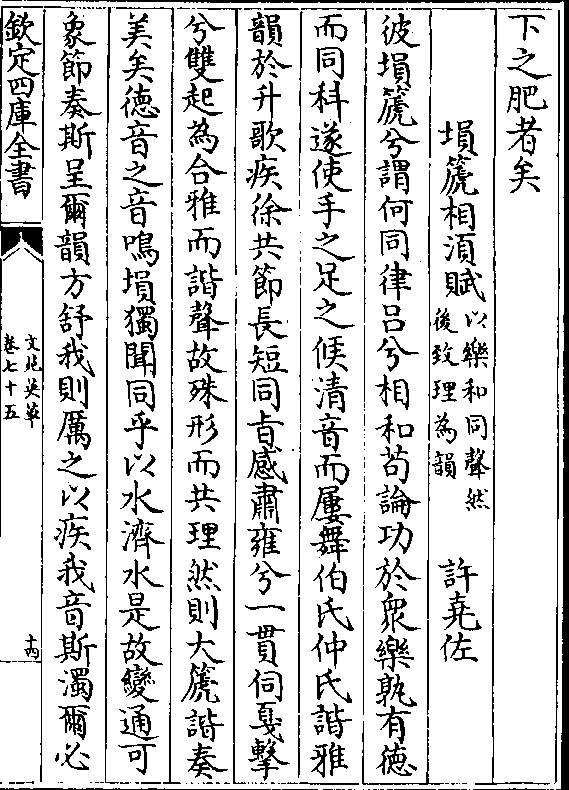 下之肥者矣
塤篪相須賦以樂和同聲然後致理為韻 許堯佐
彼塤篪兮謂何同律呂兮相和苟論功於眾樂孰有德
而同科遂使手之足之候清音而屢舞伯氏仲氏諧雅
韻於升歌疾徐共節長短同㫖感肅雍兮一貫伺戛擊
兮雙起為合雅而諧聲故殊形而共理然則大篪諧奏
美矣德音之音鳴塤獨聞同乎以水濟水是故變通可
象節奏斯呈爾韻方舒我則厲之以疾我音斯濁爾必
欽定四庫全書
文苑英華
卷七十五
十四